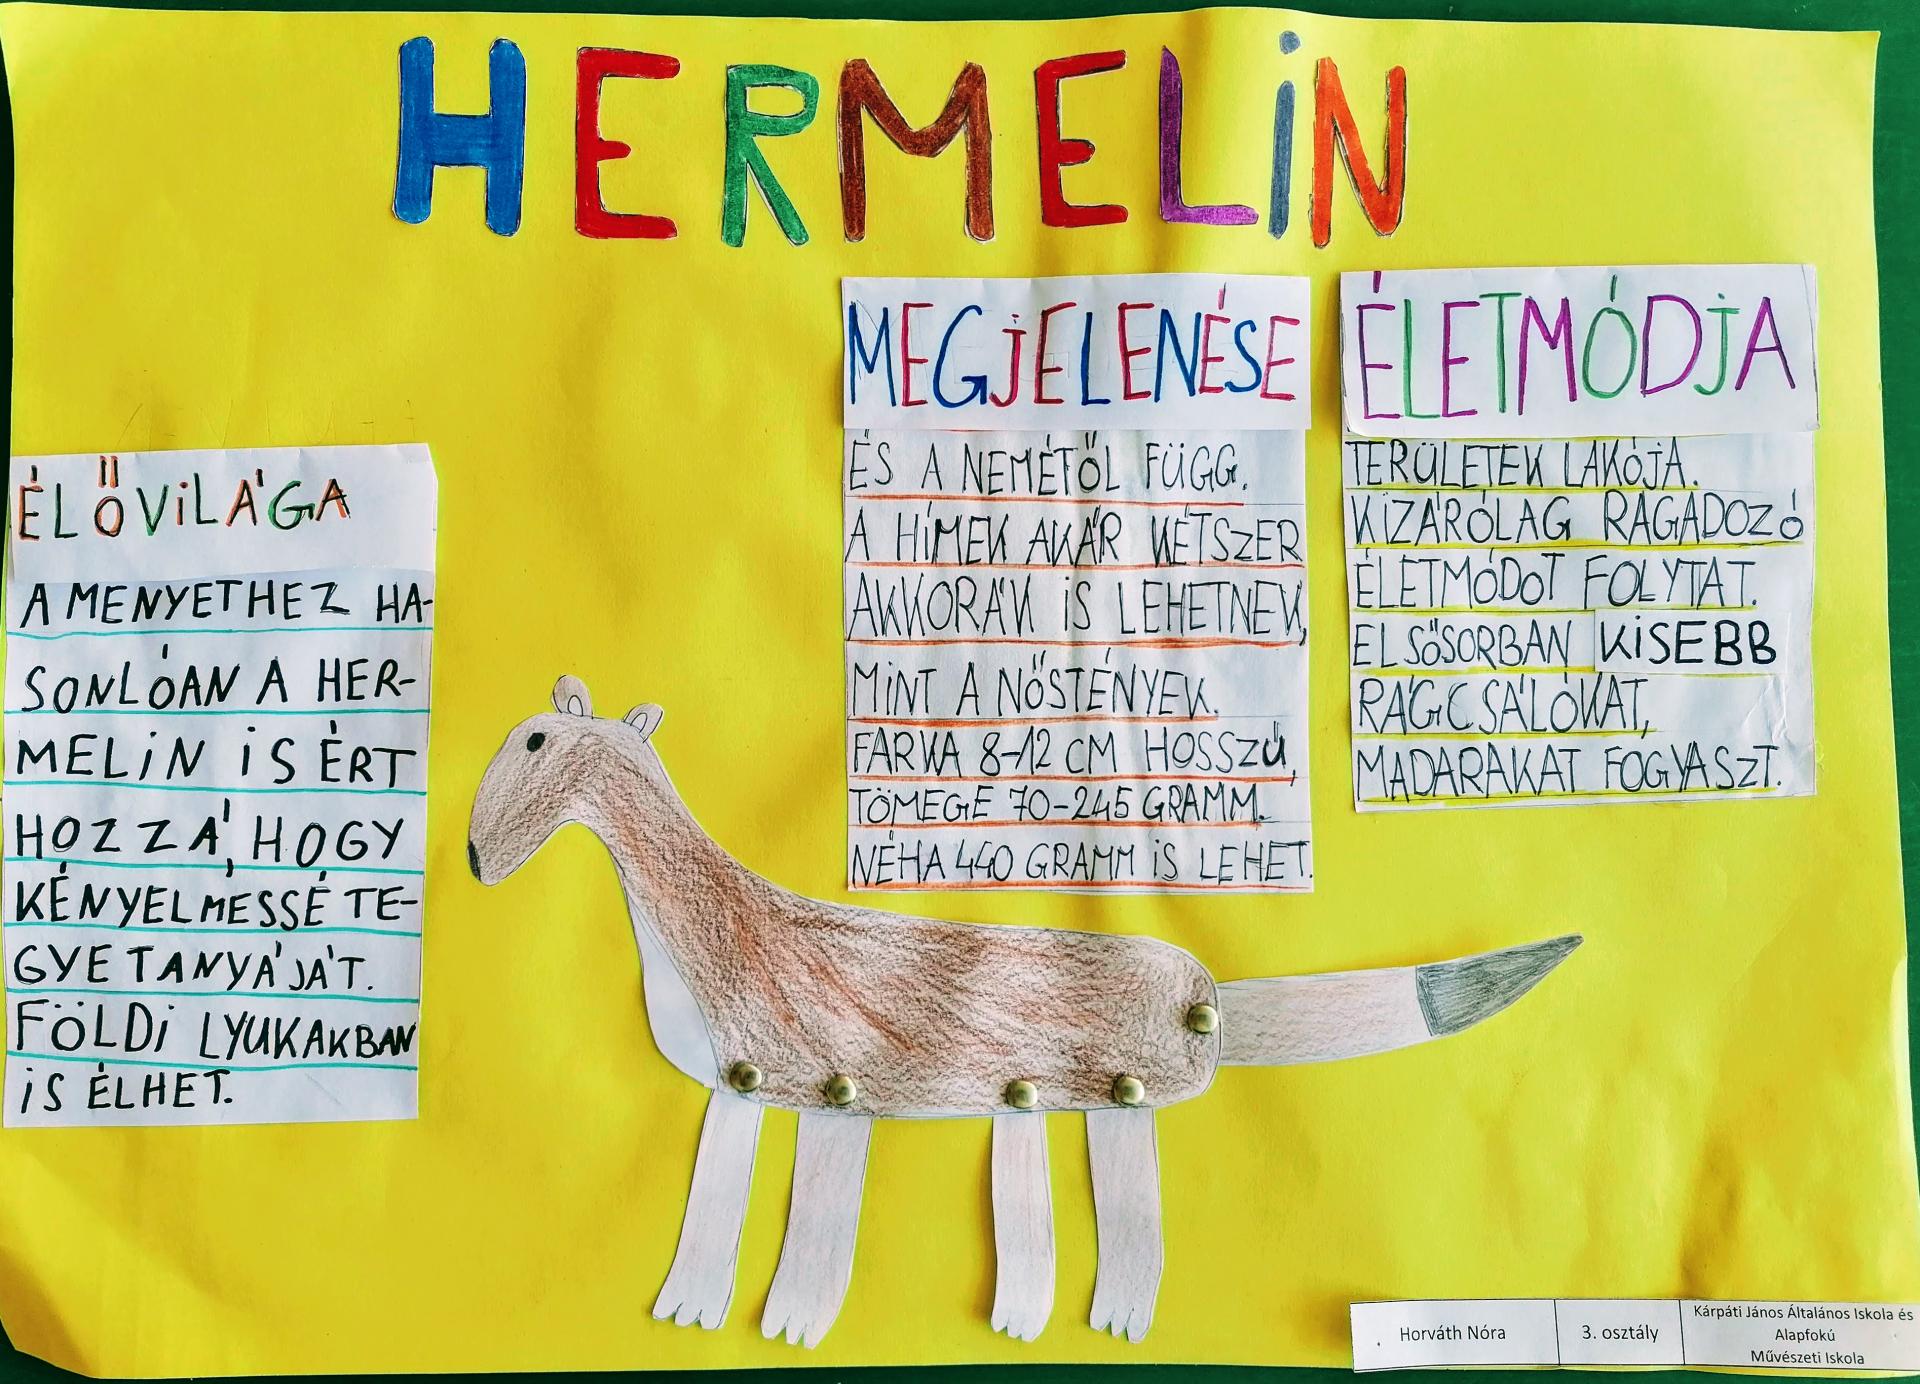 HERMELiN
ÉLŐViLÁGA
A MENYETHEZ HA-
SONLÓAN A HER-
MELiN iS ÉRT
HOZZÁ, HOGY
KÉNYELMESSÉ TE-
GYE TANYÁJÁT.
FÖLDi LYUKAKBAN
iS ÉLHET.
MEGJELENÉSE
ÉS A NEMÉTŐL FÜGG.
A HÍMEK AKÁR KÉTSZER
AKKORÁK iS LEHETNEK,
MiNT A NŐSTÉNYEK.
FARKA 8-12 CM HOSSZÚ,
TÖMEGE 70-245 GRAMM.
NÉHA 440 GRAMM iS LEHET.
ÉLETMÓDJA
TERÜLETEK LAKÓJA.
KIZÁRÓLAG RAGADOZÓ
ÉLETMÓDOT FOLYTAT.
ELSŐSORBAN KiSEBB
RÁGCSÁLÓKAT,
MADARAKAT FOGYASZT.
Horváth Nóra
3. osztály
Kárpáti János Általános Iskola és
Alapfokú
Művészeti Iskola